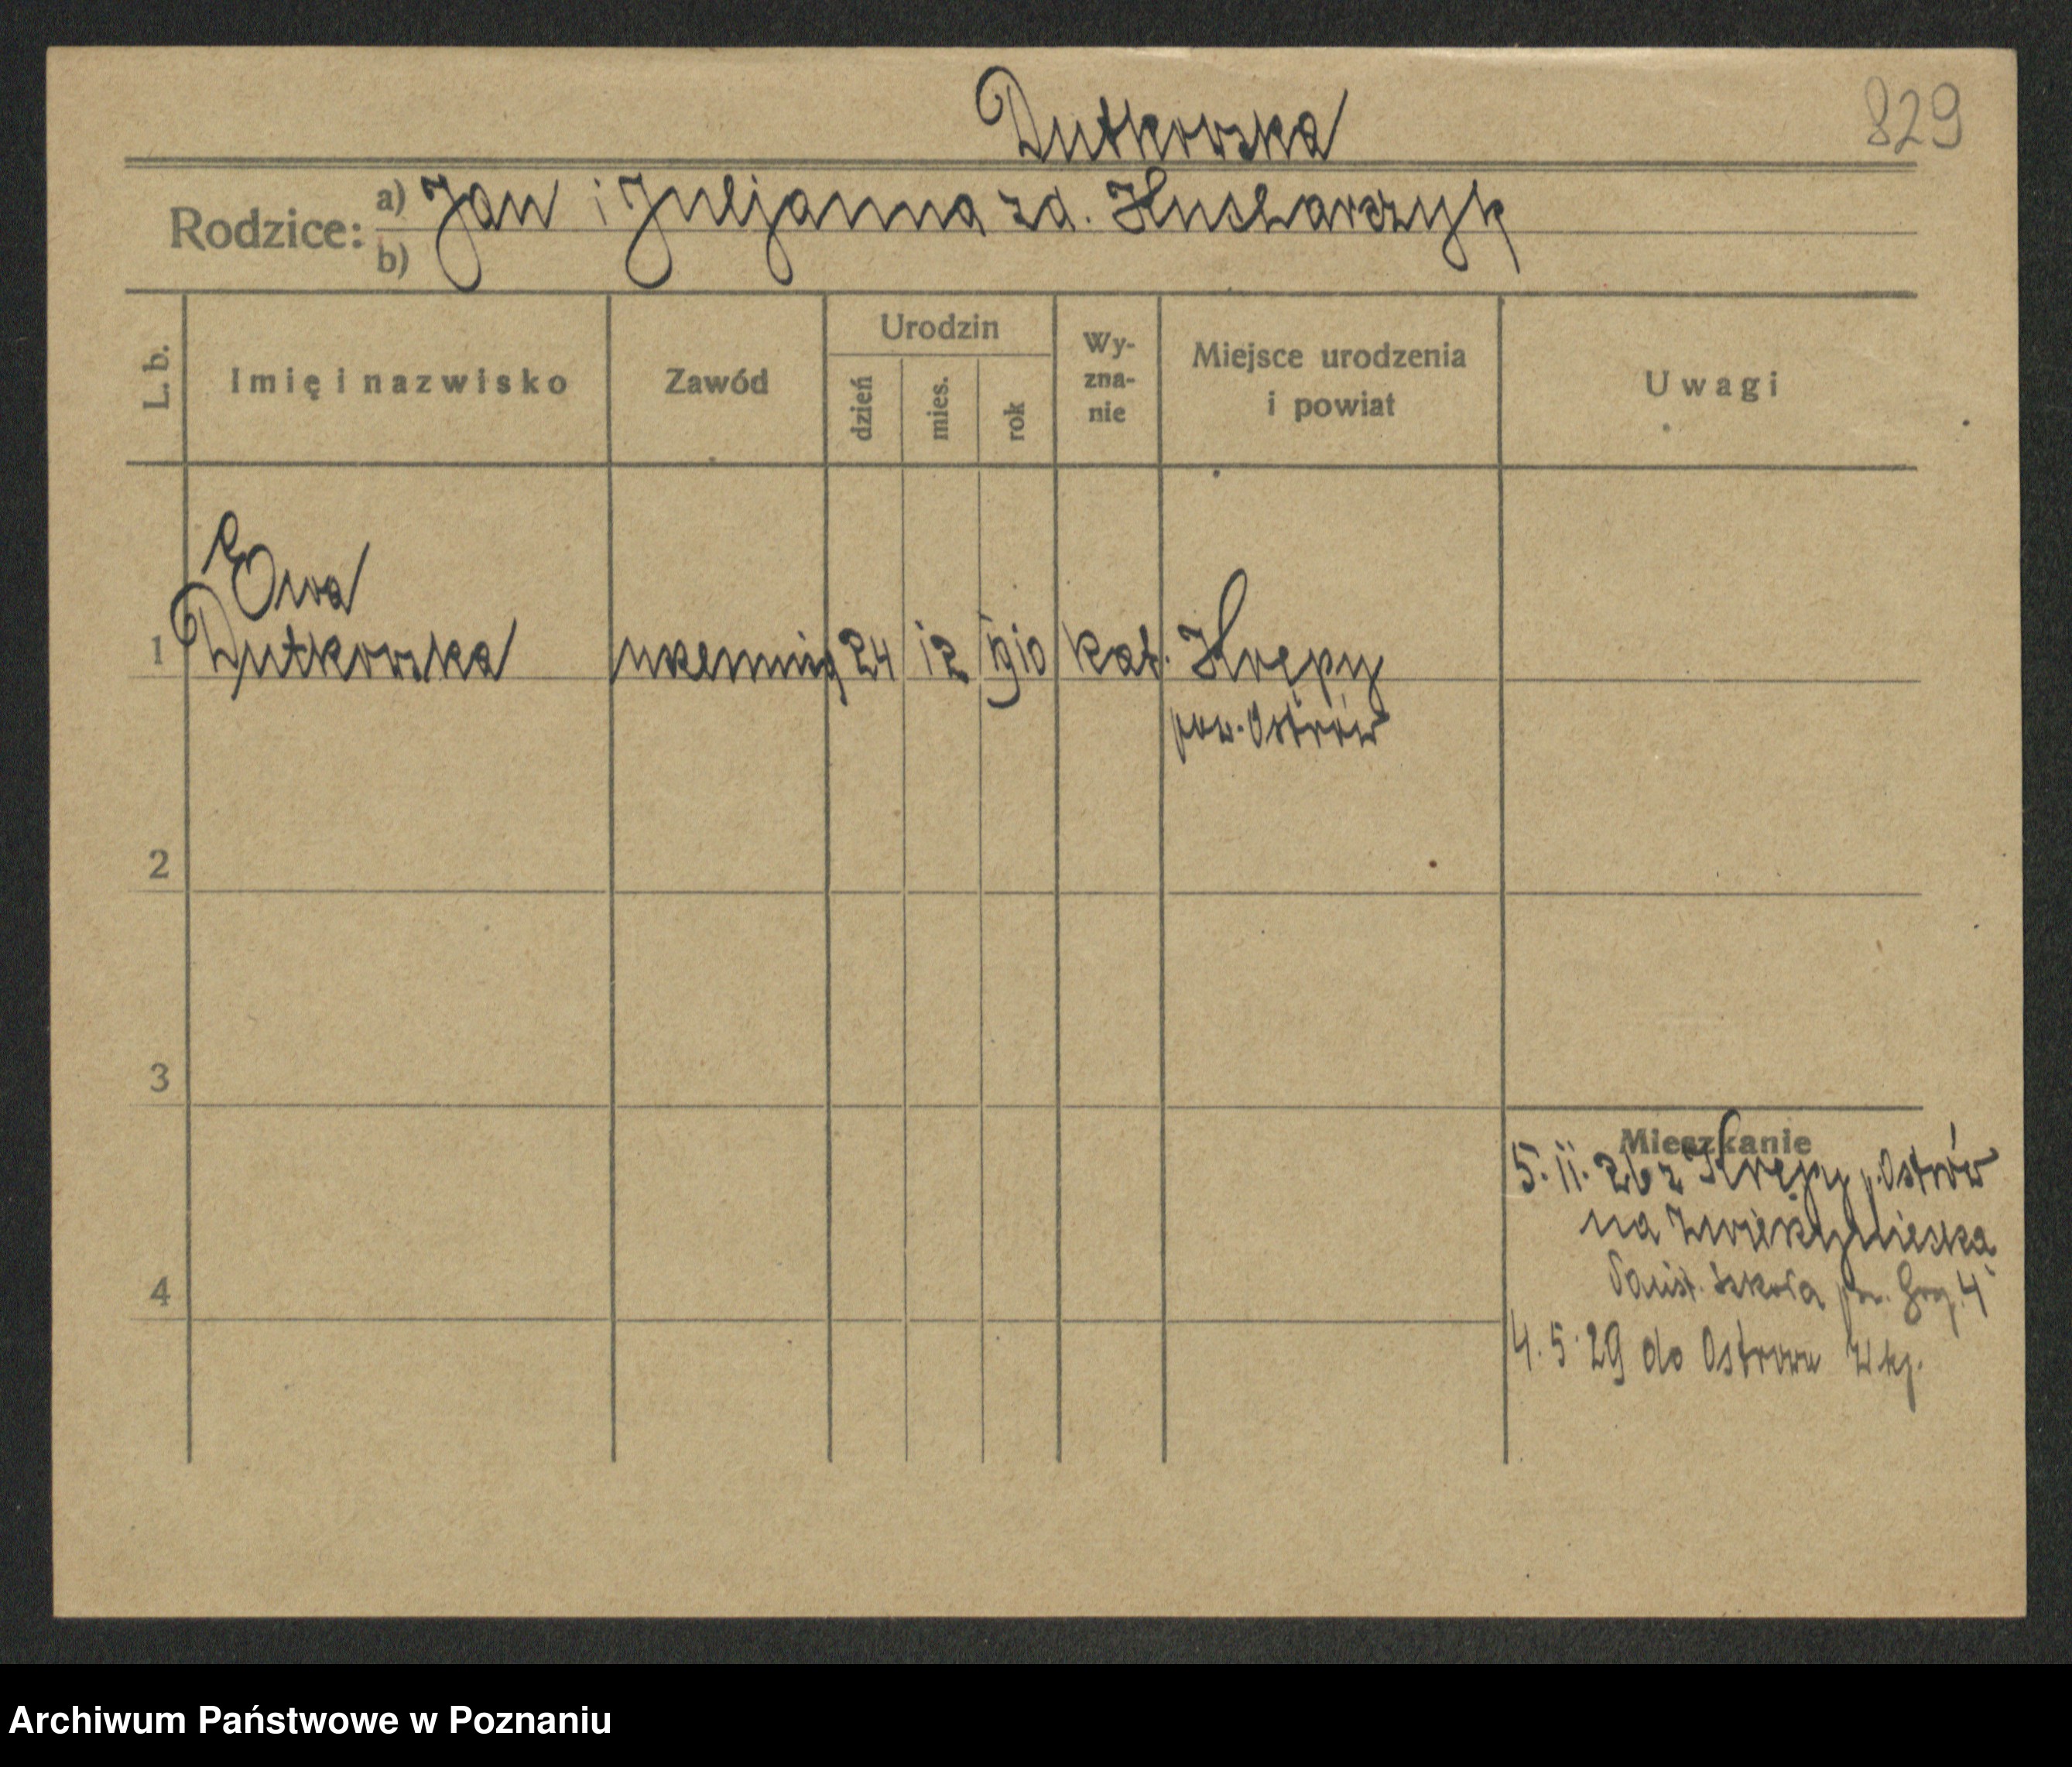 Dutkowska
829
Rodzice:
a) Jan i Juljanna zd. Kucharczyk
b)
L. b.
Imię i nazwisko
Zawód
Urodzin
dzień
mies.
rok
Wy-
zna-
nie
Miejsce urodzenia
i powiat
Uwagi
Ewa
1 Dutkowska uczennica 24 12 1910 kat. Krępy
pow. Ostrów
2
3
4
Mieszkanie
5. 11. 26 z Krępy p. Ostrów
na
Państ. Szkoła 4
4. 5. 29 do Ostrowa Wlkp.
Archiwum Państwowe w Poznaniu